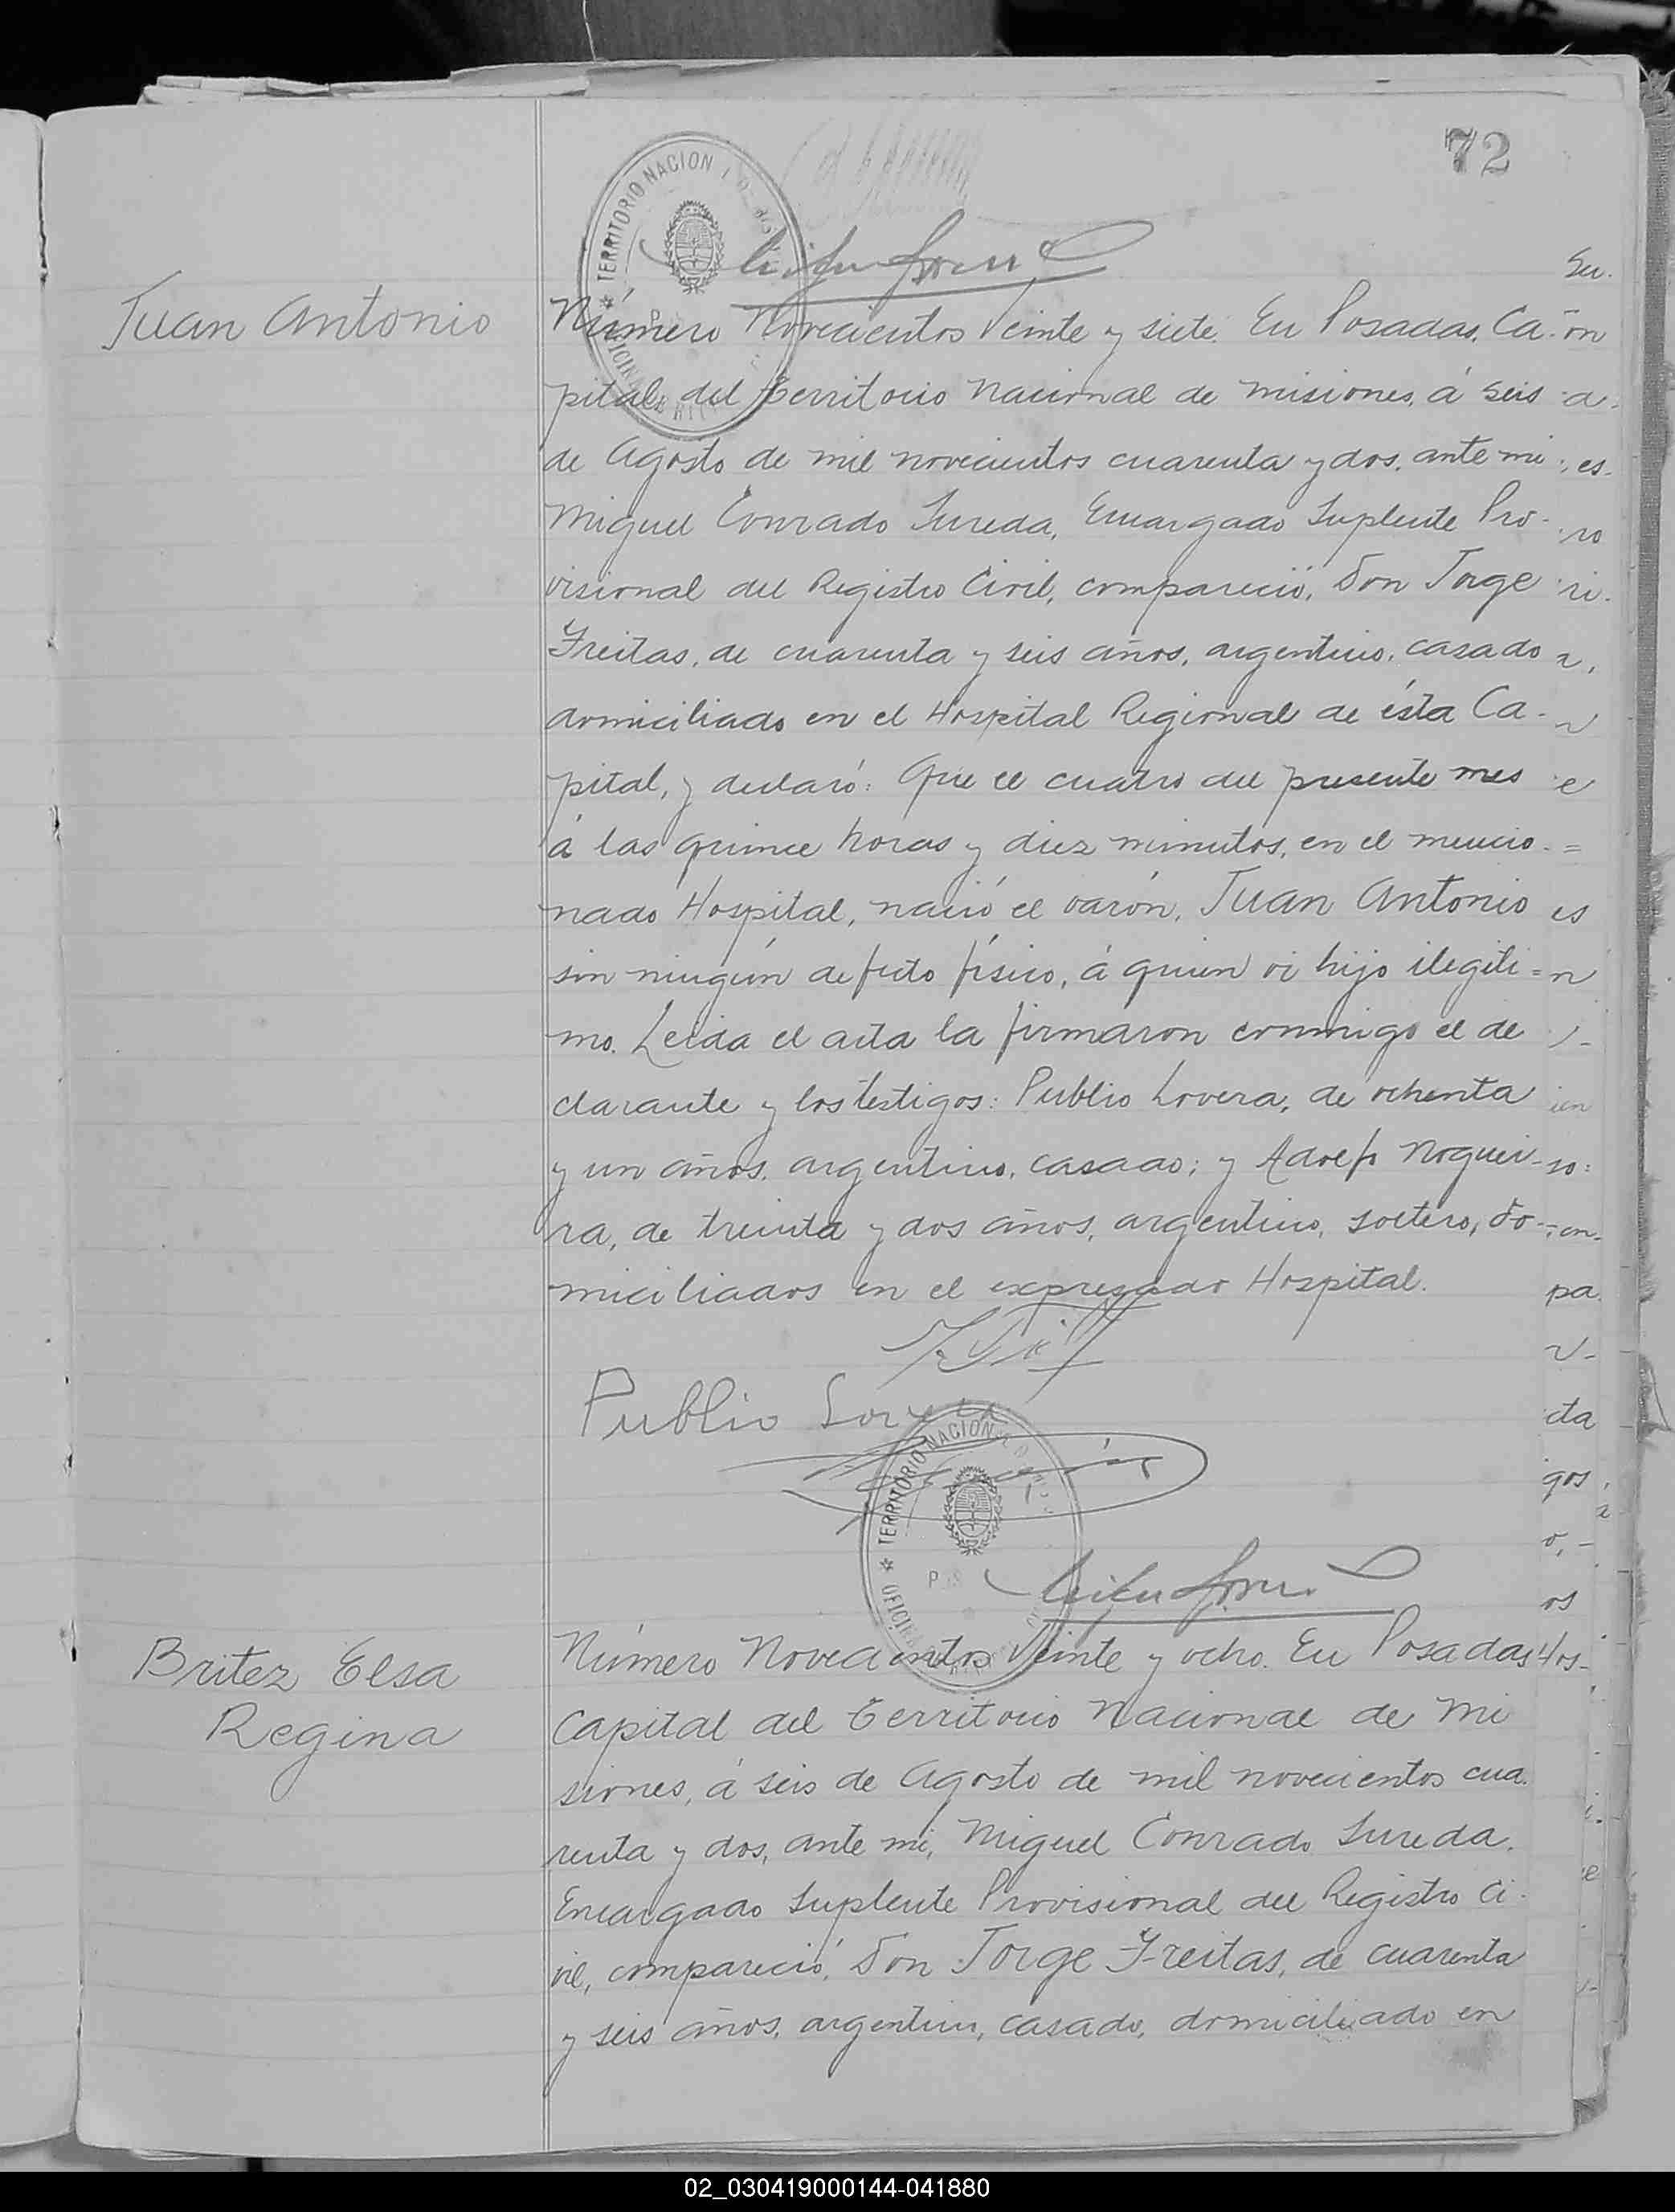 72
TERRITORIO NACION
OFICIN
Juan Antonio
Número Novecientos Veinte y siete. En Posadas, Ca-
pital, del Territorio Nacional de Misiones, á seis
de Agosto de mil novecientos cuarenta y dos, ante mi
Miguel Conrado Sureda, Encargado Suplente Pro-
visional del Registro Civil, compareció, Don Jorge
Freitas, de cuarenta y seis años, argentino, casado
domiciliado en el Hospital Regional de ésta Ca-
pital, y declaró: Que el cuatro del presente mes
á las quince horas y diez minutos, en el mencio-
nado Hospital, nació el varón, Juan Antonio
sin ningún defecto físico, á quien vi hijo ilegiti=
mo. Leida el acta la firmaron conmigo el de
clarante y los testigos: Publio Lovera, de ochenta
y un años, argentino, casado; y Adolfo Noguei-
ra, de treinta y dos años, argentino, soltero, do-
miciliados en el expresado Hospital.
Publio Lovera
TERRITORIO NACION
OFICINA
Britez Elsa
Regina
Número Novecientos Veinte y ocho. En Posadas
Capital del Territorio Nacional de Mi
siones, á seis de Agosto de mil novecientos cua.
renta y dos, ante mi, Miguel Conrado Sureda.
Encargado Suplente Provisional del Registro Ci-
vil, compareció, Don Jorge Freitas, de cuarenta
y seis años, argentino, casado, domiciliado en
02_030419000144-041880